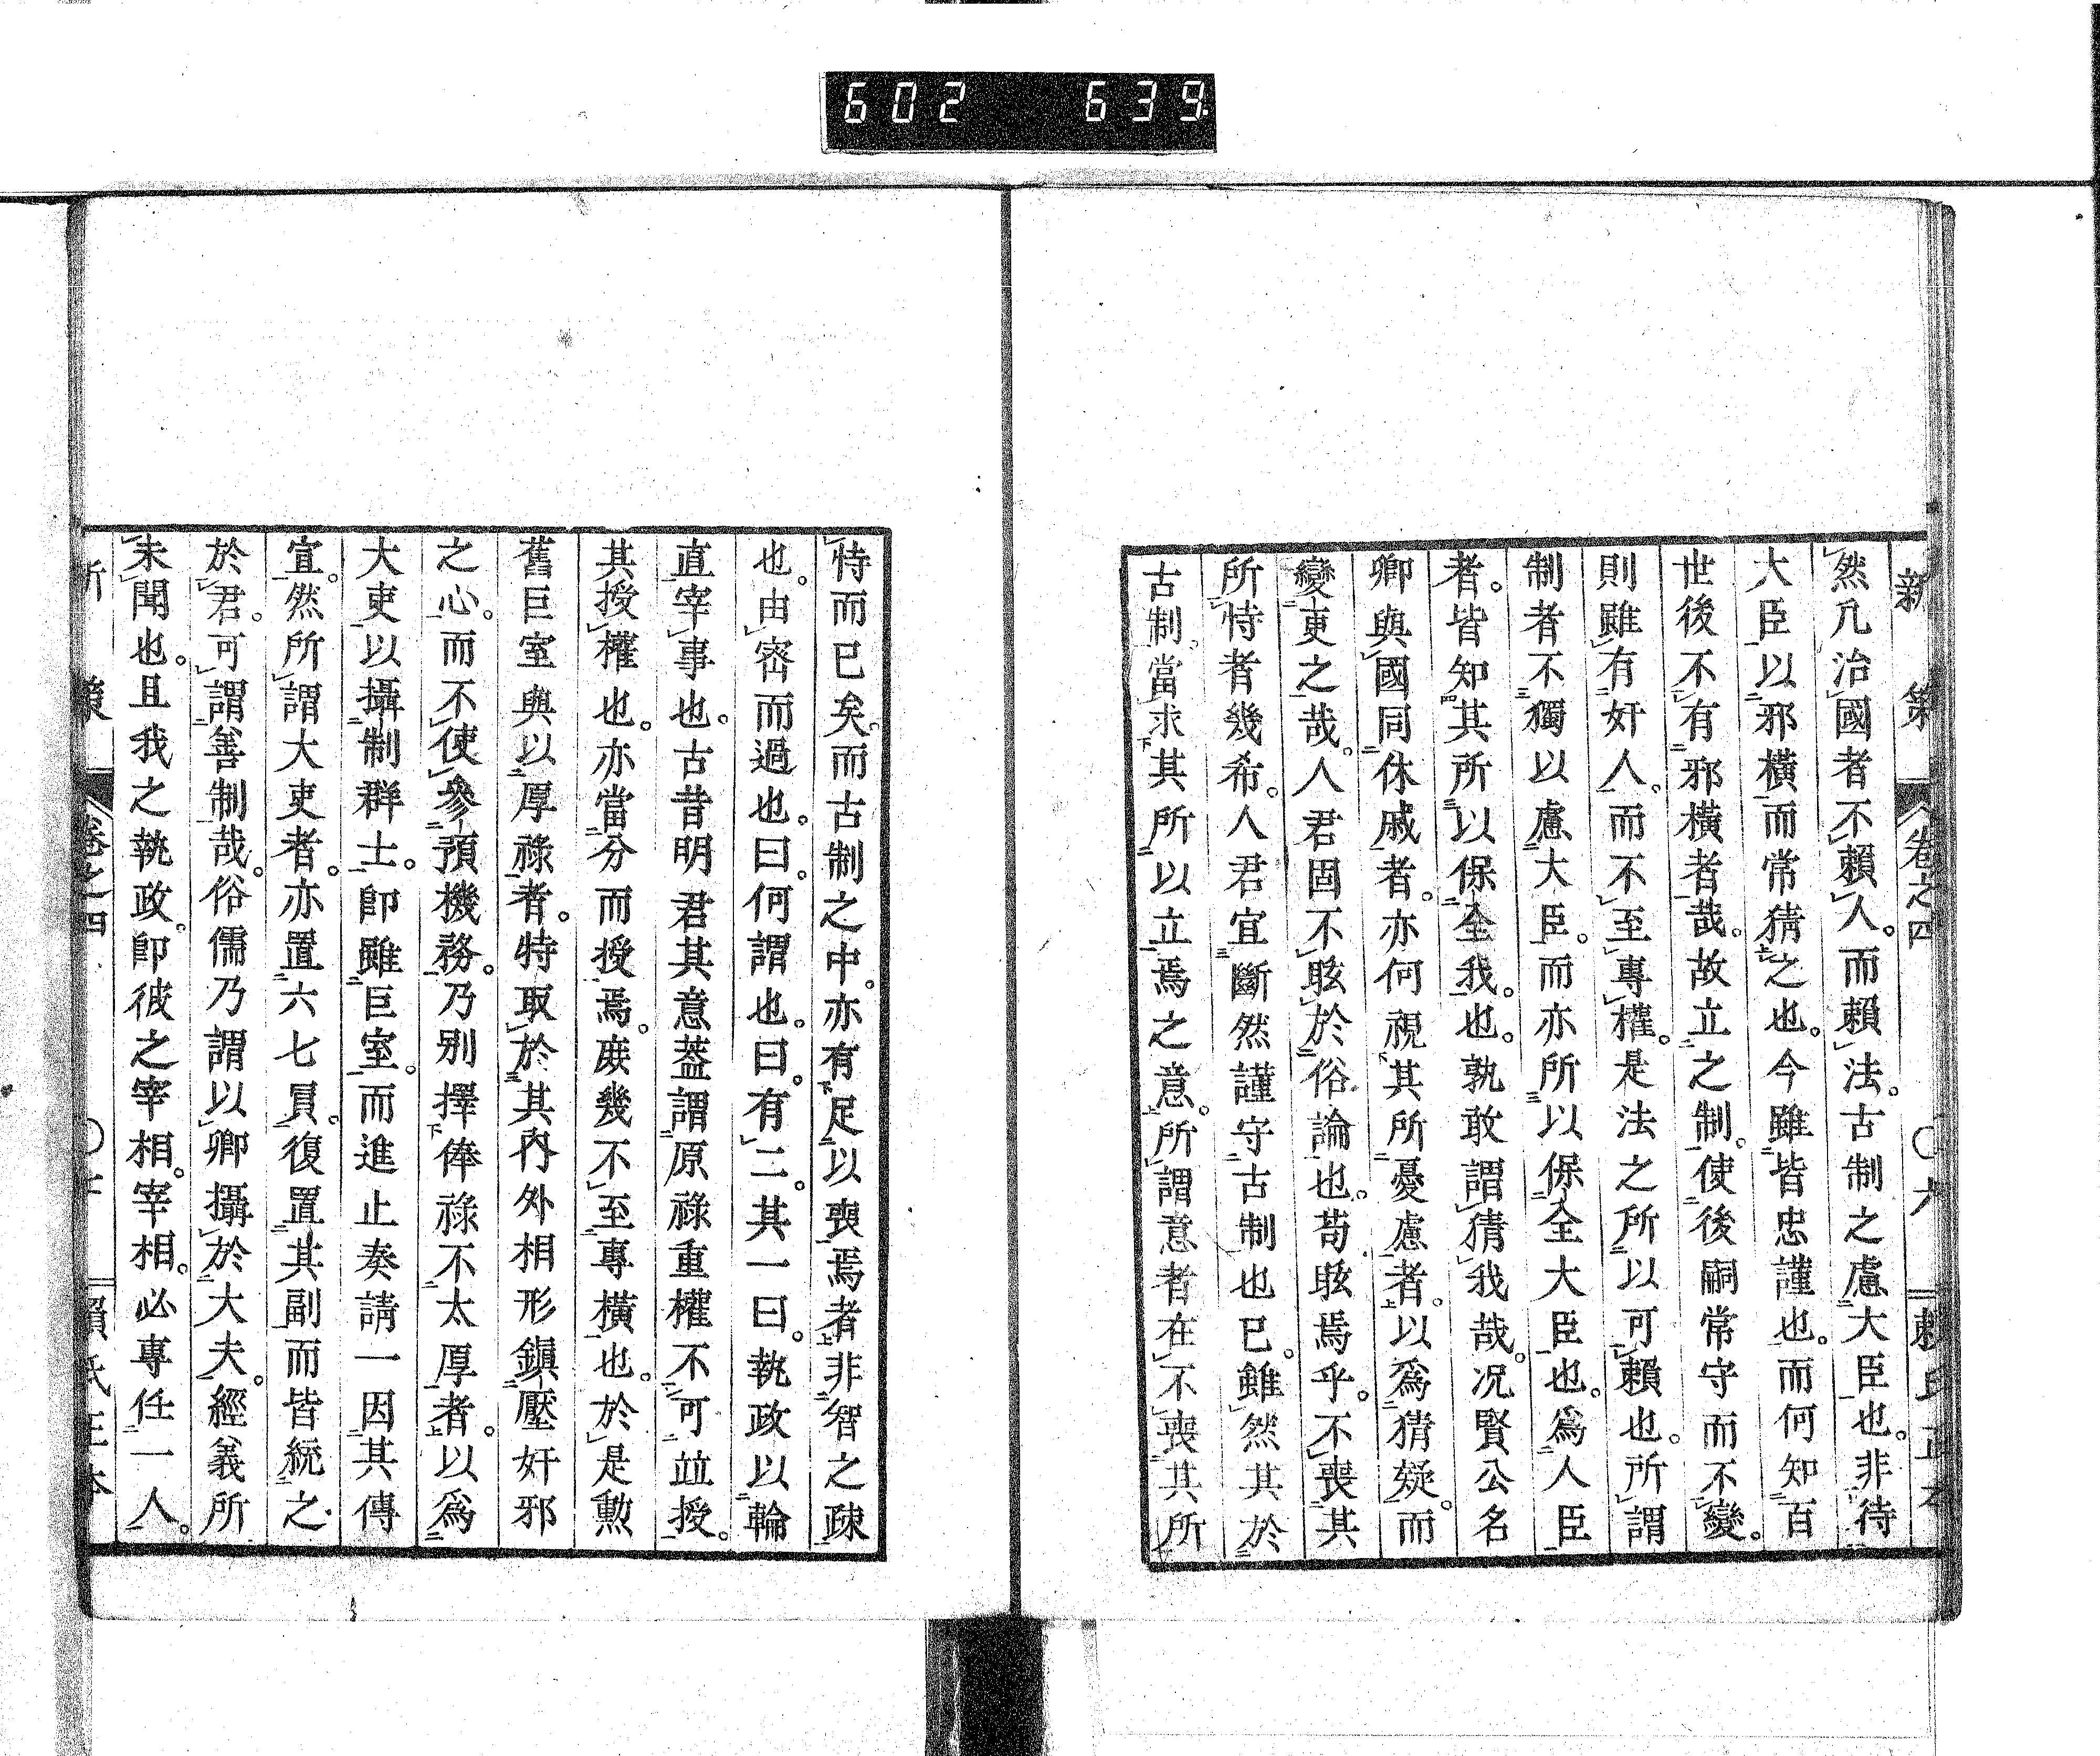 602 639
新策 卷之四 〇六 賴氏正本
然凢治國者不賴人。而賴法。古制之慮大臣也。非待
大臣以邪橫而常猜之也。今雖皆忠謹也。而何知百
世後不有邪橫者哉。故立之制。使後嗣常守而不變。
則雖有奸人。而不至專權。是法之所以可賴也。所謂
制者不獨以慮大臣。而亦所以保全大臣也。爲人臣
者。皆知其所以保全我也。孰敢謂猜我哉。况賢公名
卿與國同休戚者。亦何視其所憂慮者。以爲猜疑。而
變更之哉。人君固不眩於俗論也。苟眩焉乎。不喪其
所恃者幾希。人君宜斷然謹守古制也已。雖然其於
古制。當求其所以立焉之意。所謂意者在不喪其所
恃而已矣。而古制之中。亦有足以喪焉者非智之疎
也。由密而過也。曰。何謂也。曰。有二。其一曰。執政以輪
直宰事也。古昔明君其意葢謂原祿重權不可竝授。
其授權也。亦當分而授焉。庻幾不至專橫也。於是勲
舊巨室與以厚祿者。特取於其內外相形鎭壓奸邪
之心。而不使參預機務。乃别擇俸祿不太厚者。以爲
大吏以攝制群士。卽雖巨室。而進止奏請一因其傳
宣。然所謂大吏者。亦置六七員。復置其副而皆統之
於君。可謂善制哉。俗儒乃謂以卿攝於大夫。經義所
未聞也。且我之執政。卽彼之宰相。宰相。必專任一人。
卷之四